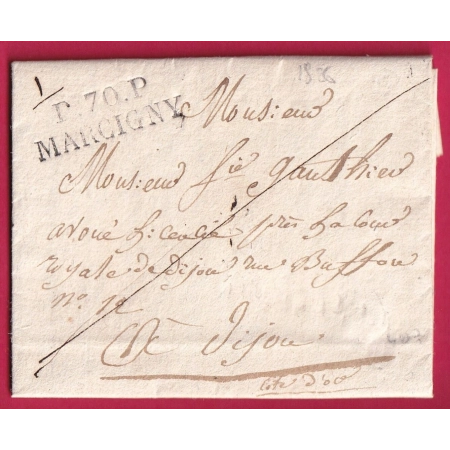 P.70.P
MARCIGNY
Monsieur
Monsieur fié gauthier
avoué licencié près la Cour
royale de dijon rue Buffon
n° 12
à dijon
cote d'or